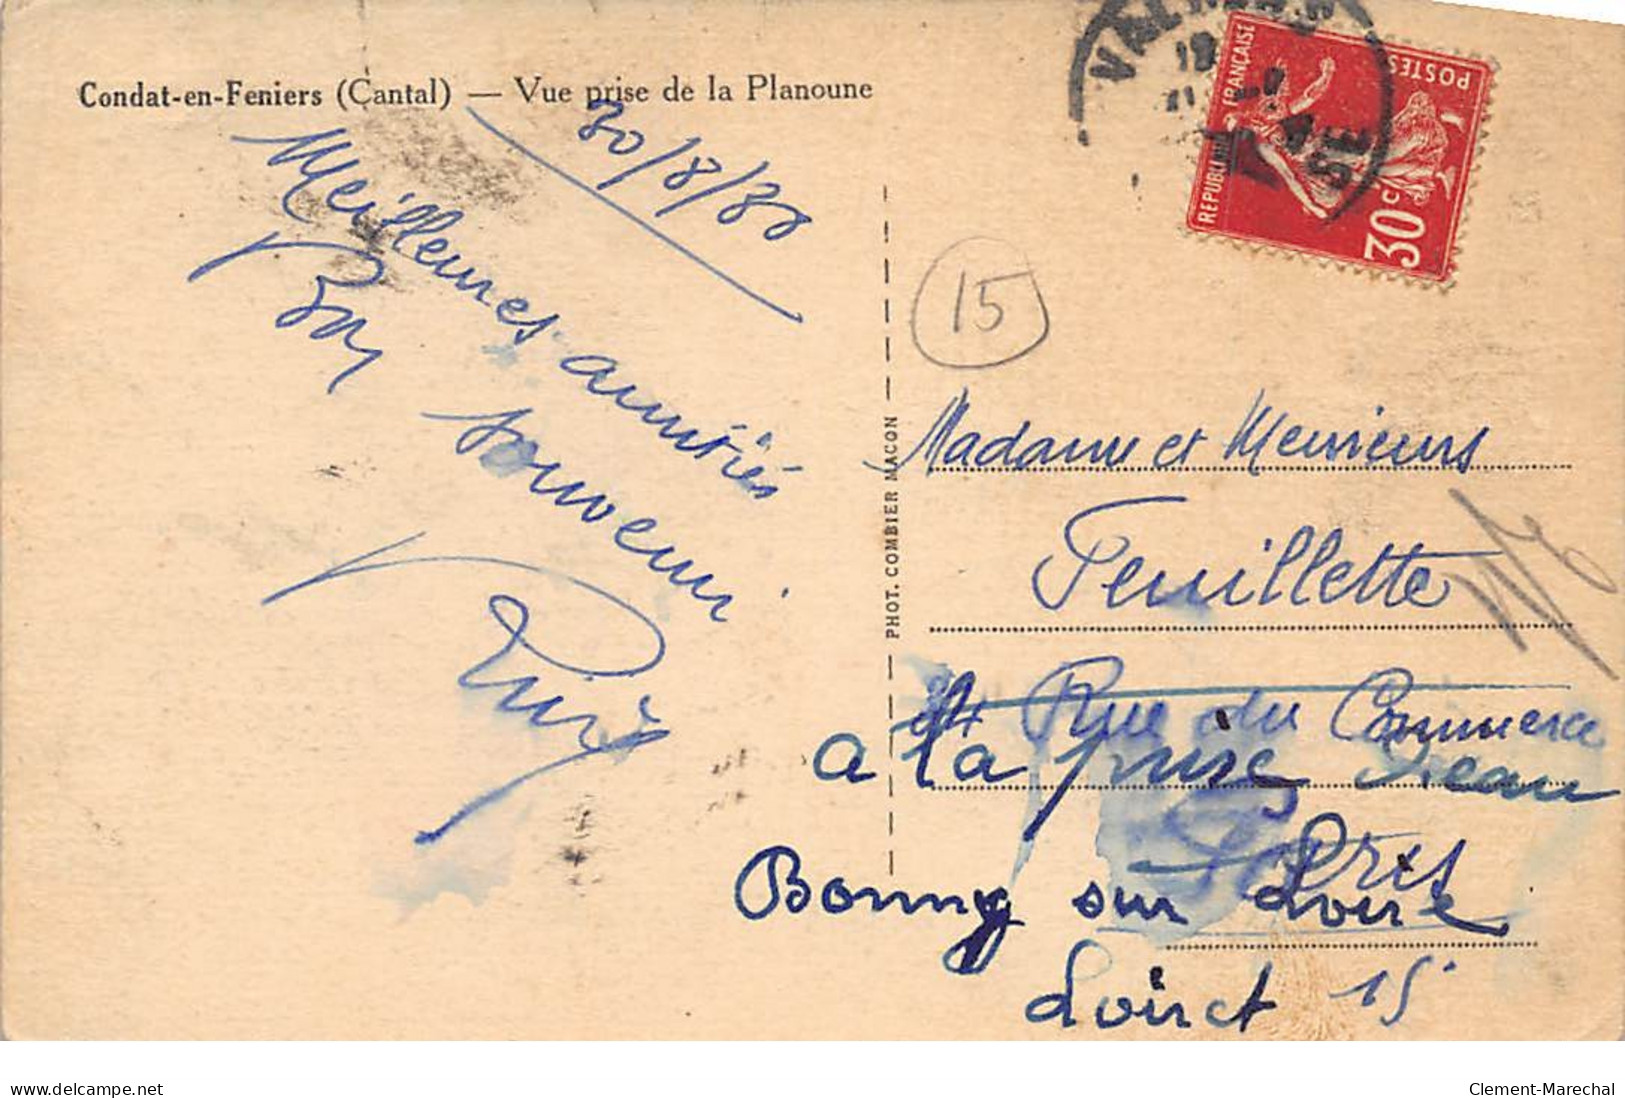 Condat-en-Feniers (Cantal) — Vue prise de la Planoune
30/8/38
Meilleures amitiés
Bon souvenir
15
PHOT. COMBIER MACON
REPUBLIQUE FRANÇAISE
POSTES
30c
Madame et Messieurs
Feuillette
Rue du Commerce
a la prise d'eau
Paris
Bonny sur Loire
Loiret 15
www.delcampe.net
Clement-Marechal